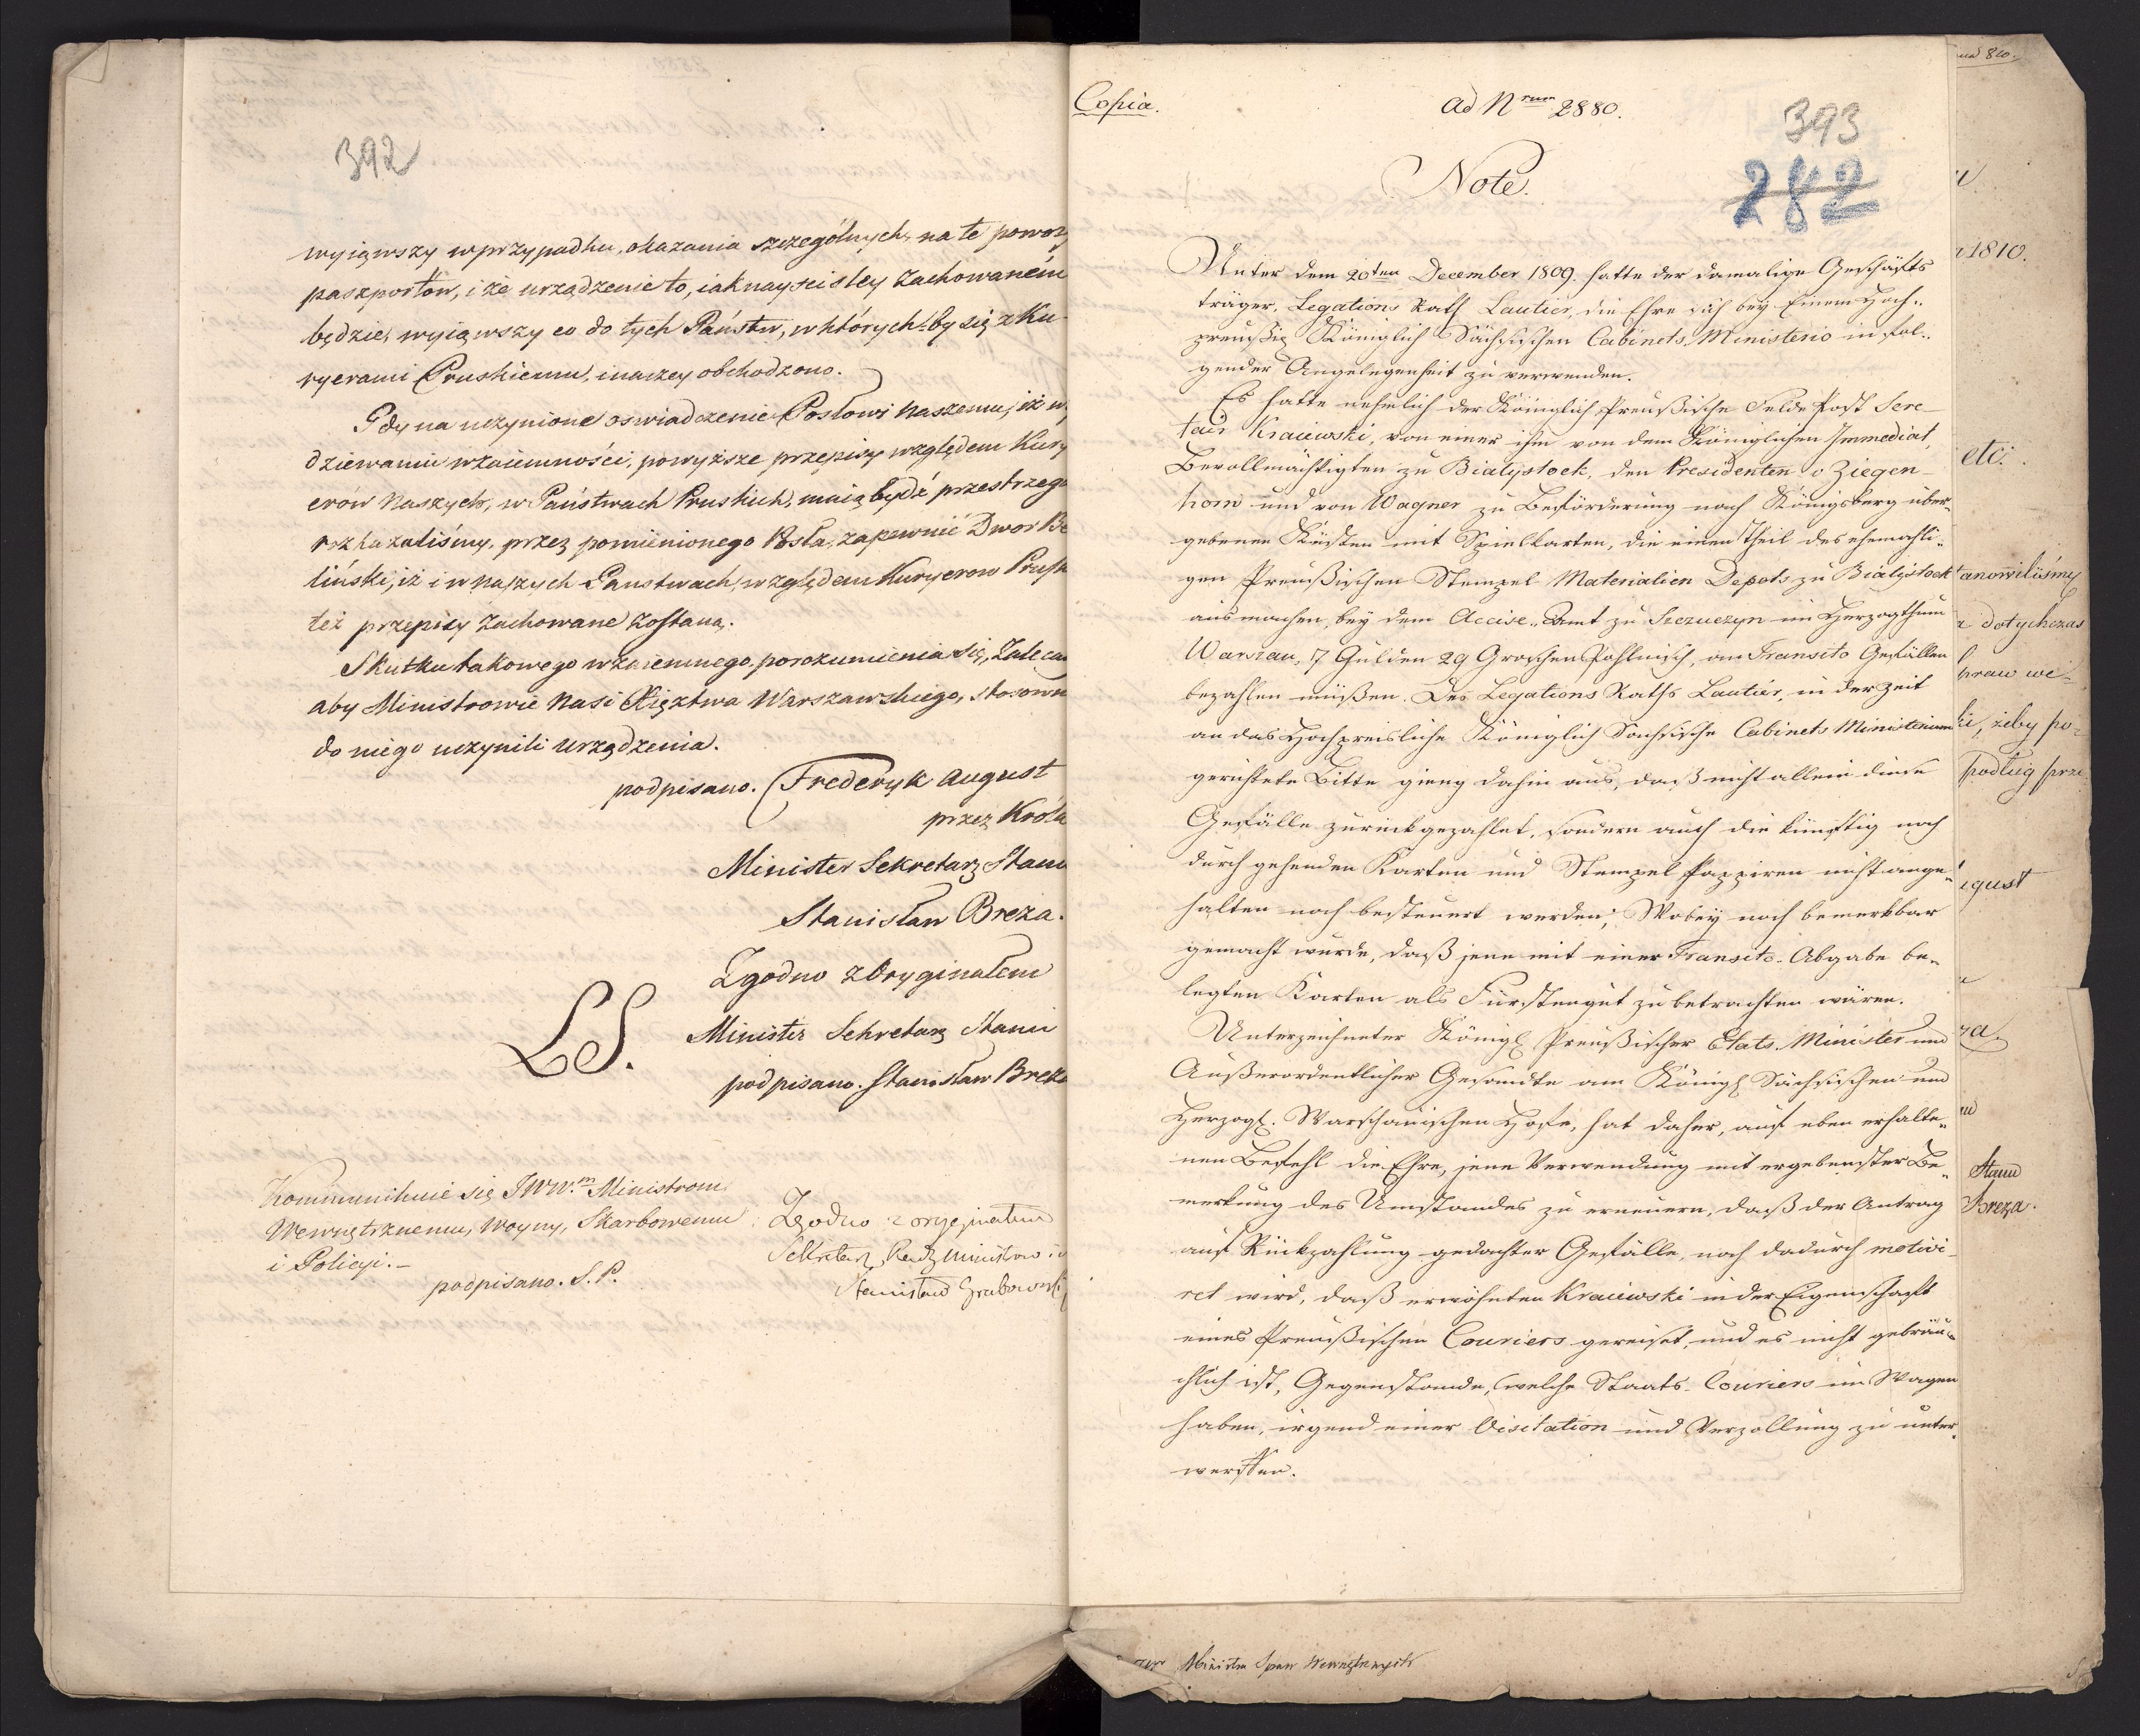 392
wyiąwszy w przypadku, okazania szczególnych, na te powozy
paszportów, i że urządzenie to, iak nayscisley zachowaném
będzie, wyiąwszy co do tych Państw, w których by się z Ku-
ryerami Pruskiemi, inaczey obchodzono.
Gdy na uczynione oswiadczenie Posłowi Naszemu, iż w
dziewaniu wzaiemności, powyższe przepisy względem Kury
erów Naszych, w Państwach Pruskich, maią bydź przestrzega
rozkazaliśmy, przez pomienionego Posła, zapewnić Dwor Be
liński, iż i w naszych Panstwach, względem Kuryerow Prusk
też przepisy zachowane zostaną.
Skutku takowego wzaiemnego porozumienia się, Zaleca
aby Ministrowie Nasi Xięztwa Warszawskiego, stosown
do niego uczynili urządzenia.
podpisano. Frederyk August
przez Króla
Minister Sekretarz Stanu
Stanisław Breza.
Zgodno z Oryginałem
LS. Minister Sekretarz Stanu
podpisano. Stanisław Breza
Kommunikuie się JWW.m Ministrom
Wewnętrznemu, Woyny, Skarbowemu
i Policyi.-
podpisano. S. P.
Zgodno z oryginałem
Sekretarz Rady Ministrow
Stanisław Grabowski
Copia.
ad Nrum 2880.
393
282
Note.
Unter dem 20ten December 1809. hatte der damalige Geschäfts
träger, Legations Rath Lautier, die Ehre sich bey Einem Hoch-
preußig Königlich Sächsischen Cabinets-Ministerio in fol-
gender Angelegenheit zu verwenden.
Es hatte nehmlich der Königlich Preußische Felde Post Secre-
tair Kraiewski, von einer ihm von dem Königlichen Immediat,
Bevollmächtigten zu Bialystock, den Presidenten v Ziegen-
horn und von Wagner zu Beförderung nach Königsberg über-
gebenen Kisten mit Spielkarten, die einen Theil des ehemahli-
gen Preußischen Stempel Materialien Depots zu Bialystock
ausmachen, bey dem Accise-Amt zu Szczuczyn im Herzogthum
Warszau, 7 Gulden 29 Groschen Pohlnisch, an Transito Gefällen
bezahlen müßen. Des Legations Raths Lautier, in der Zeit
an das Hochpreisliche Königlich Sächsische Cabinets Ministerium
gerichtete Bitte gieng dahin aus, daß nicht allein diese
Gefälle zurückgezahlet, sondern auch die künftig noch
durch gehenden Karten und Stempel Pappiren nicht ange-
halten noch besteuert werden; Wobey noch bemerkbar
gemacht wurde, daß jene mit einer Transito-Abgabe be-
legten Karten als Fürstengut zu betrachten wären.
Unterzeichneter Königl Preußischer Etats-Minister und
Außerordentlicher Gesandte am Königl Sächsischen und
Herzogl. Warschauischen Hofe, hat daher, auf eben erhalte-
nen Befehl die Ehre, jene Verwendung mit ergebenster Be-
merkung des Umstandes zu erneuern, daß der Antrag
auf Rückzahlung gedachter Gefälle, noch dadurch motivi-
ret wird, daß erwöhnten Kraiewski in der Eigenschaft
eines Preußischen Couriers gereiset, und es nicht gebräu-
chlich ist, Gegenstande, welche Staats-Couriers im Wagen
haben, irgend einer Visitation und Verzollung zu unter-
werffen.
1810.
etc.
tanowiliśmy
dotychczas
praw we-
ki, żeby po-
podług prze
gust
za.
Stanu
Breza.
Ministra Spraw Wewnętrznych